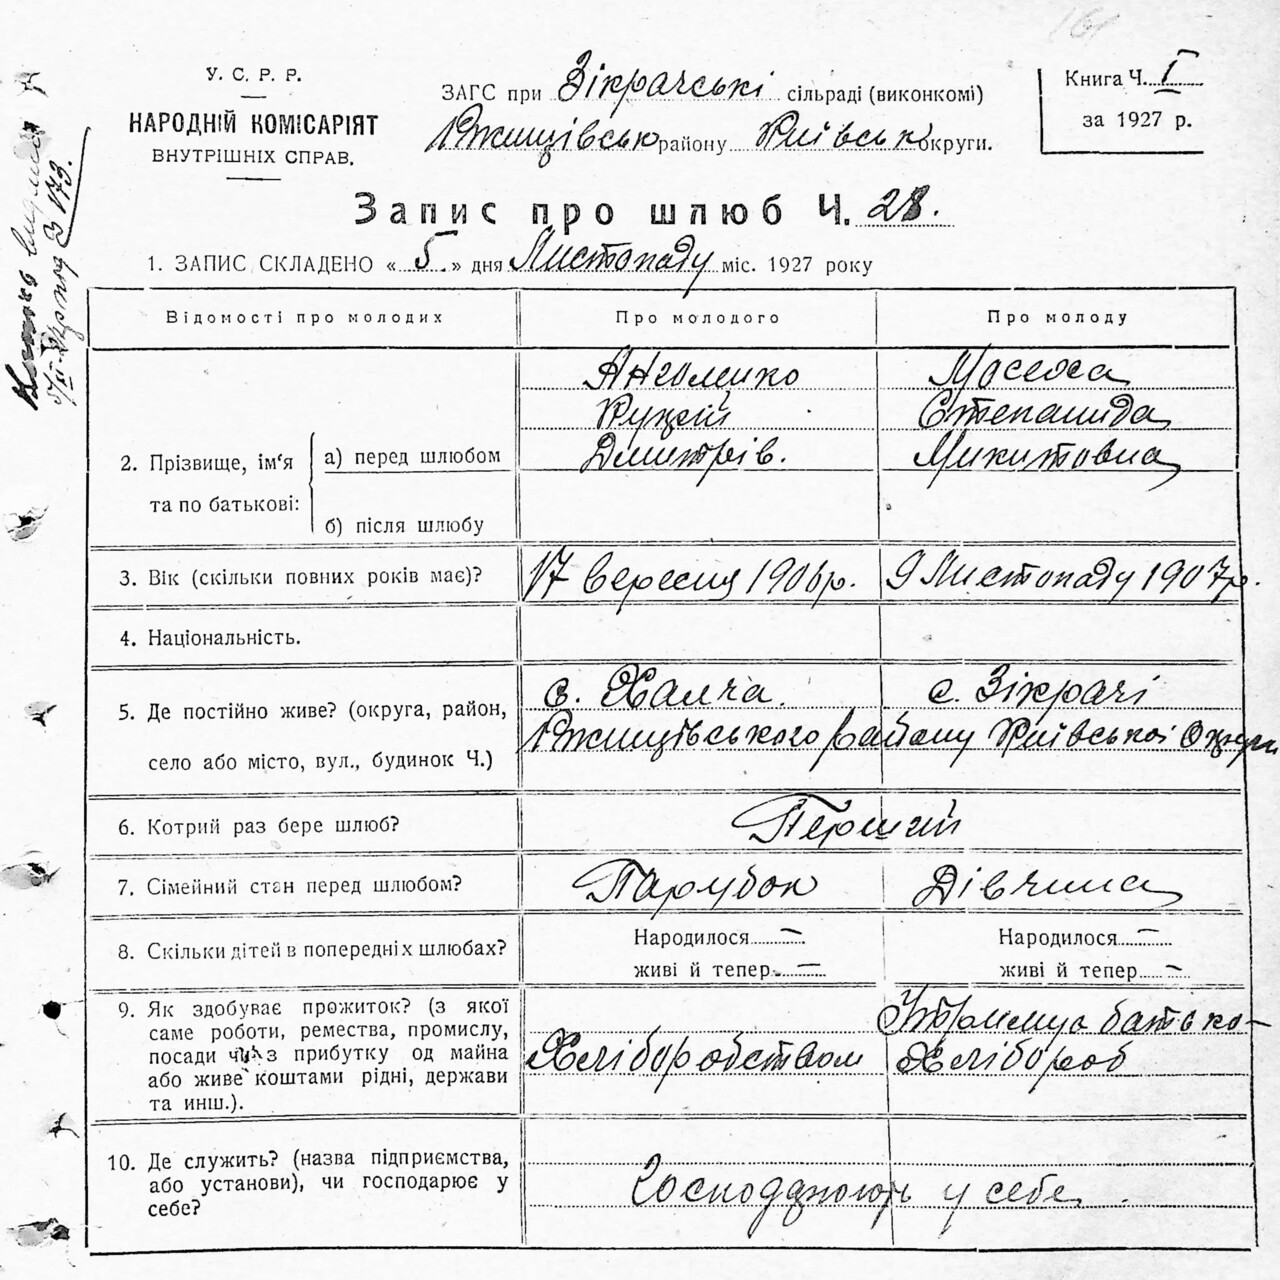 161
У. С. Р. Р.
НАРОДНІЙ КОМІСАРІЯТ
ВНУТРІШНІХ СПРАВ.
ЗАГС при Зікрачські сільраді (виконкомі)
Ржищівськ району Київськ округи.
Книга Ч. I
за 1927 р.
Запис про шлюб Ч. 28.
1. ЗАПИС СКЛАДЕНО « 5. » дня Листопаду міс. 1927 року
Відомості про молодих
Про молодого
Про молоду
2. Прізвище, ім'я
та по батькові:
а) перед шлюбом
б) після шлюбу
Дмитрів.
Степанида
Микитовна
3. Вік (скільки повних років має)?
17 вересня 1906 р.
9 Листопаду 1907 р.
4. Національність.
5. Де постійно живе? (округа, район,
село або місто, вул., будинок Ч.)
с. Халча.
с. Зікрачі
Ржищівського району Київської Округи
6. Котрий раз бере шлюб?
Перший
7. Сімейний стан перед шлюбом?
Парубок
Дівчина
8. Скільки дітей в попередніх шлюбах?
Народилося —
живі й тепер —
Народилося —
живі й тепер —
9. Як здобуває прожиток? (з якої
саме роботи, ремества, промислу,
посади чи з прибутку од майна
або живе коштами рідні, держави
та инш.).
Хліборобством
Утримує батько-
Хлібороб
10. Де служить? (назва підприємства,
або установи), чи господарює у
себе?
Господарюють у себе.